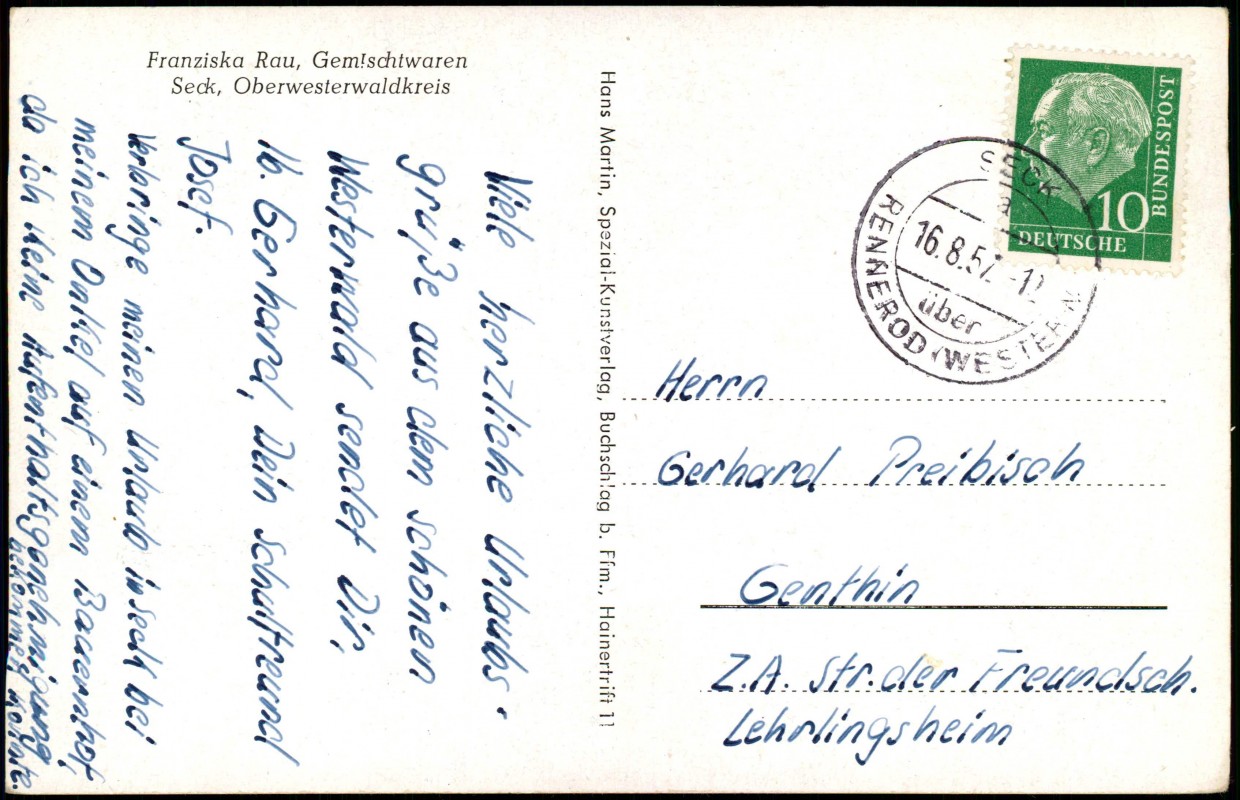 Franziska Rau, Gemischtwaren
Seck, Oberwesterwaldkreis
Viele herzliche Urlaubs-
grüße aus dem schönen
Westerwald sendet Dir,
lb. Gerhard, Dein Schulfreund
Josef.
Verbringe meinen Urlaub in Seck bei
meinem Onkel auf einem Bauernhof,
da ich keine Aufenthaltsgenehmigung
bekommen konnte.
Hans Martin, Spezial-Kunstverlag, Buchschlag b. Ffm., Hainertrift 11
DEUTSCHE
BUNDESPOST
10
SECK
a
16.8.57.-12
über
RENNEROD (WESTERW)
Herrn
Gerhard Preibisch
Genthin
Z.A. Str. der Freundsch.
Lehrlingsheim